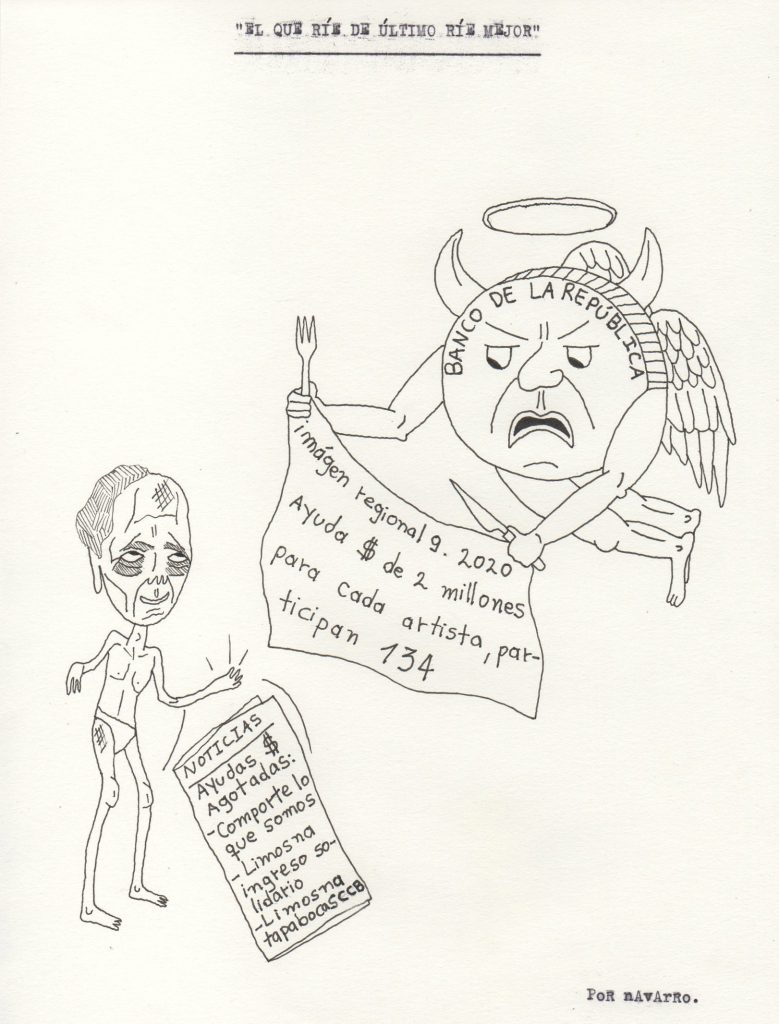 "EL QUE RÍE DE ÚLTIMO RÍE MEJOR"
BANCO DE LA REPÚBLICA
imágen regional 9. 2020
Ayuda $ de 2 millones
para cada artista, par-
ticipan 134
NOTICIAS
Ayudas $
Agotadas:
-Comporte lo
que somos
-Limosna
ingreso so-
lidario
-Limosna
tapabocas CCB
POR nAvArro.